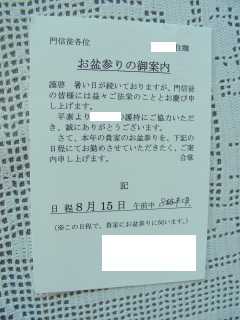 門信徒各位
住職
お盆参りの御案内
謹啓 暑い日が続いておりますが、門信徒
の皆様には益々ご法栄のこととお慶び申
し上げます。
平素より 護持にご協力いただ
き、誠にありがとうございます。
さて、本年の貴家のお盆参りを、下記の
日程にてお勤めさせていただきたく、ご案
内申し上げます。 合掌
記
日 程 8 月 15 日 午前中 8時半頃
(※この日程で、貴家にお盆参りに伺います。)